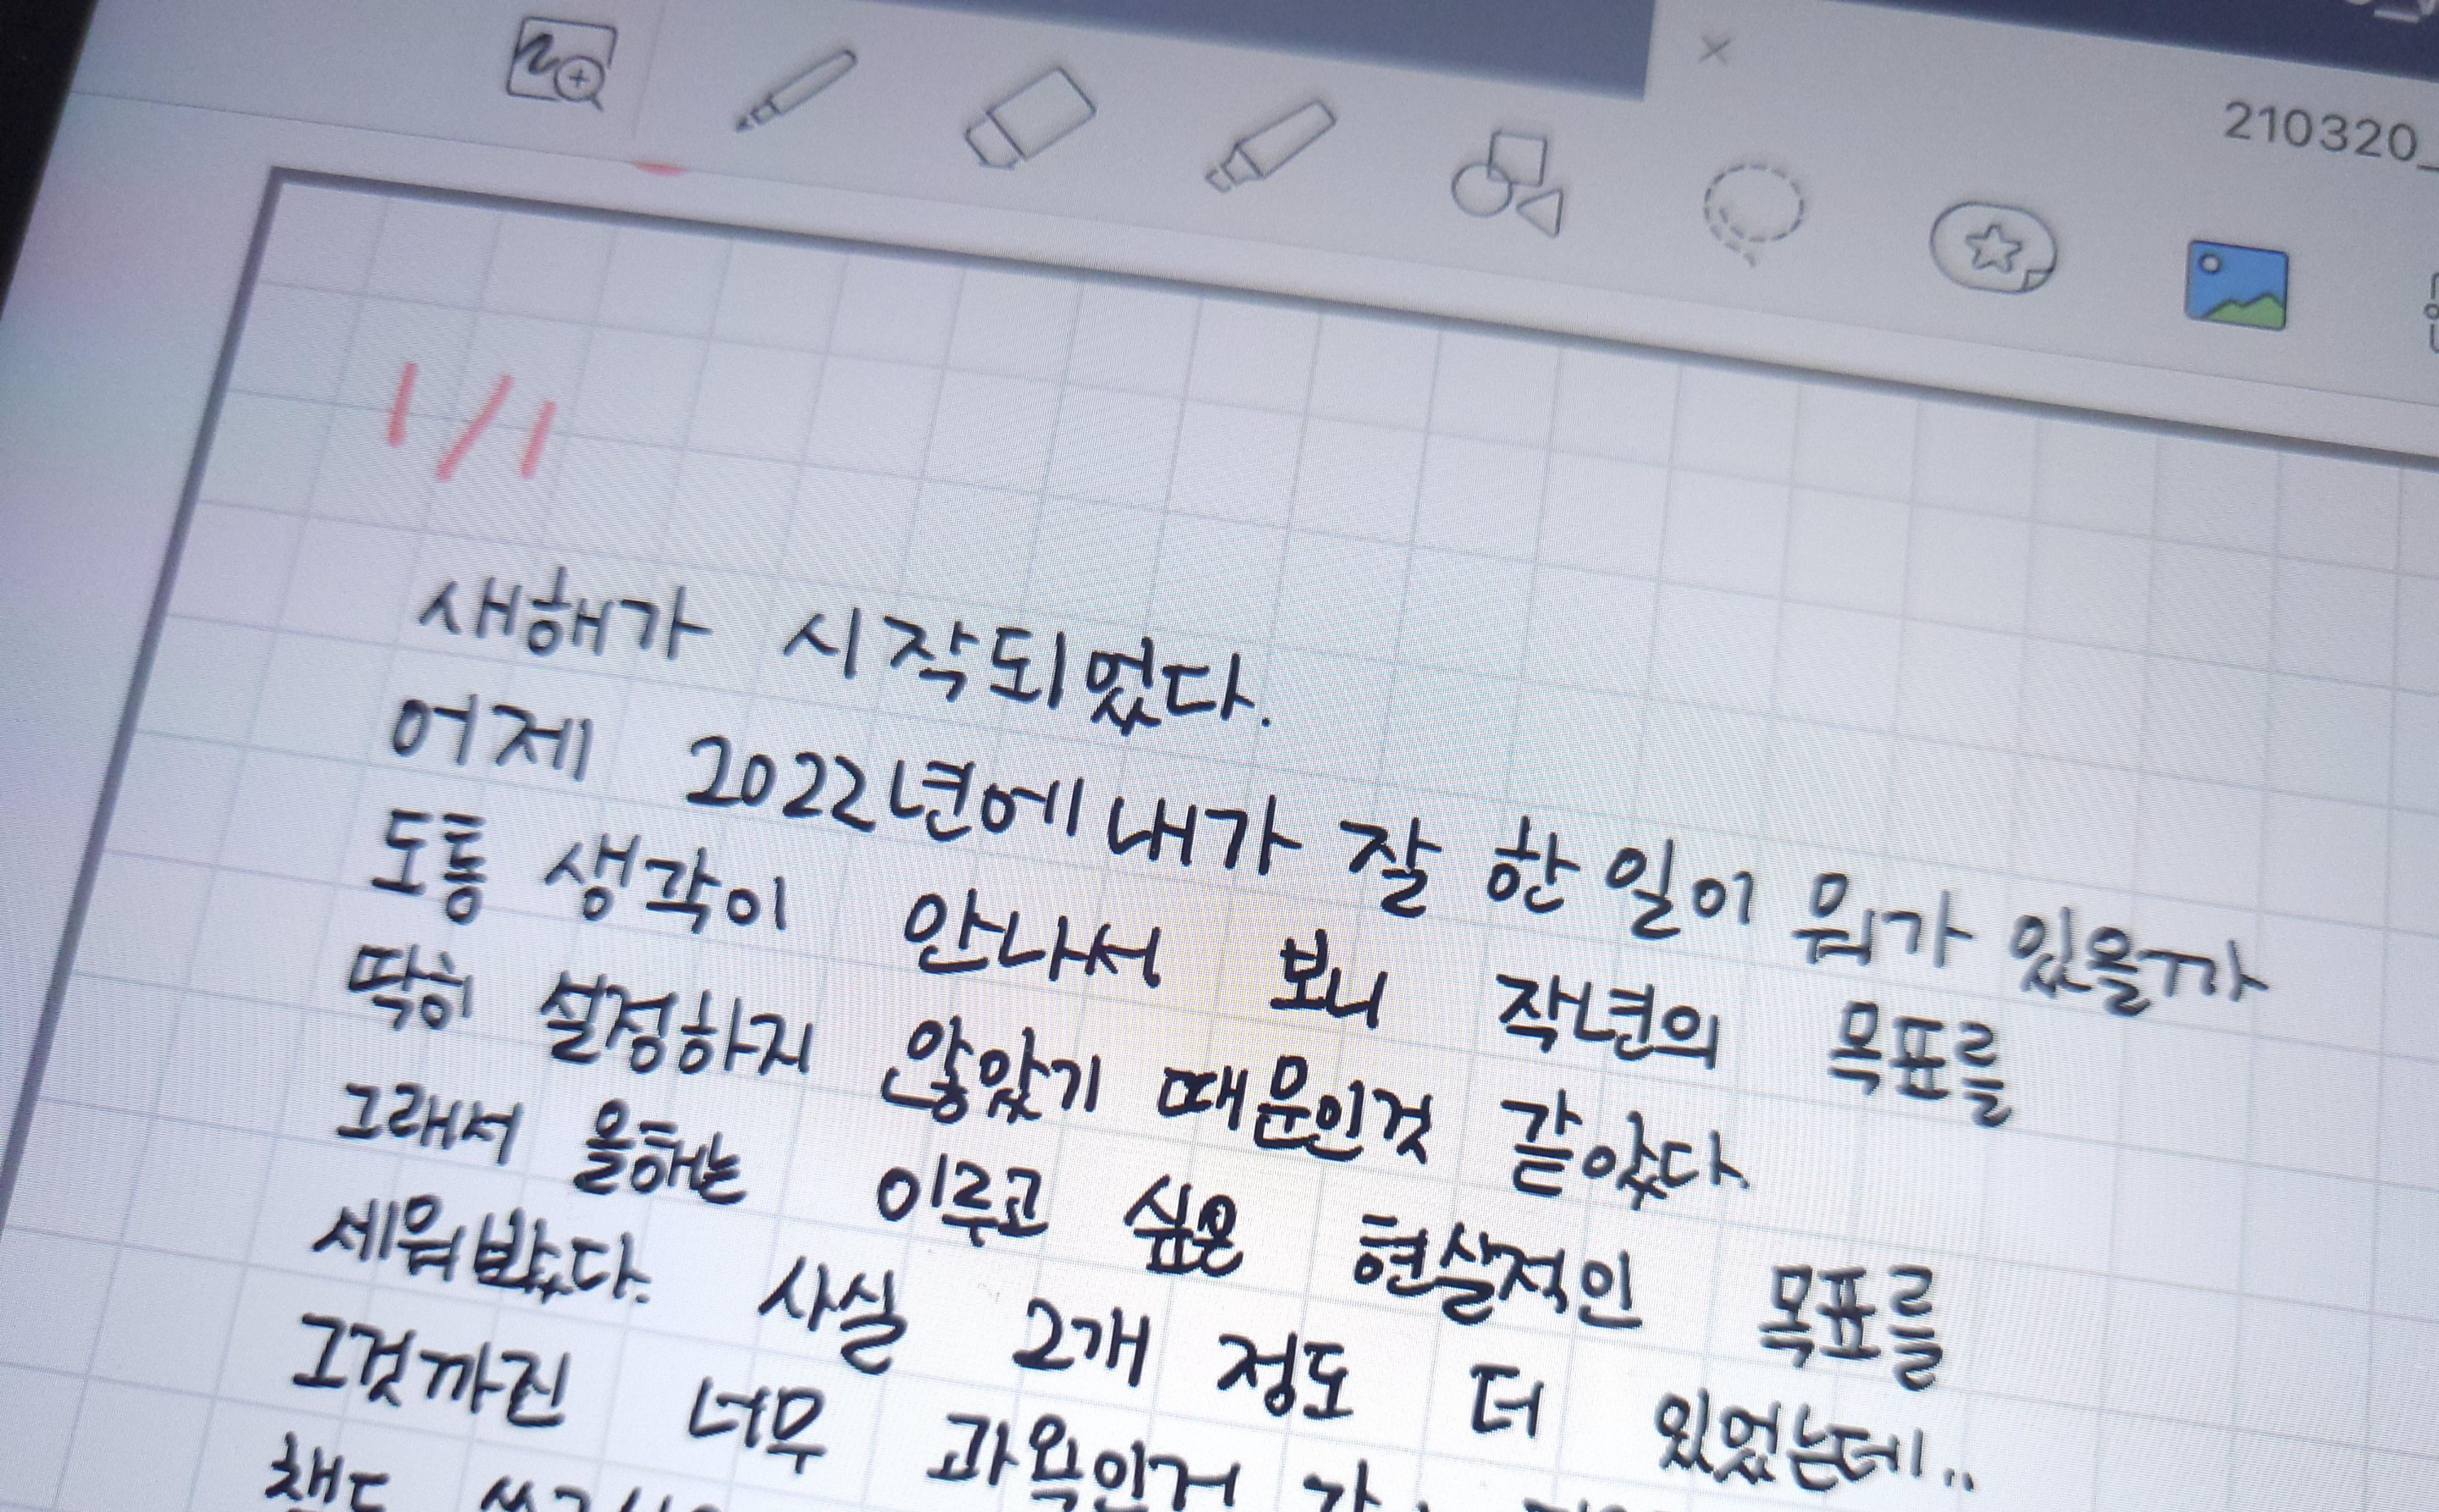 210320_
1/1
새해가 시작되었다.
어제 2022년에 내가 잘 한 일이 뭐가 있을까
도통 생각이 안나서 보니 작년의 목표를
딱히 설정하지 않았기 때문인것 같았다.
그래서 올해는 이루고 싶은 현실적인 목표를
세워봤다. 사실 2개 정도 더 있었는데..
그것까진 너무 과욕인거